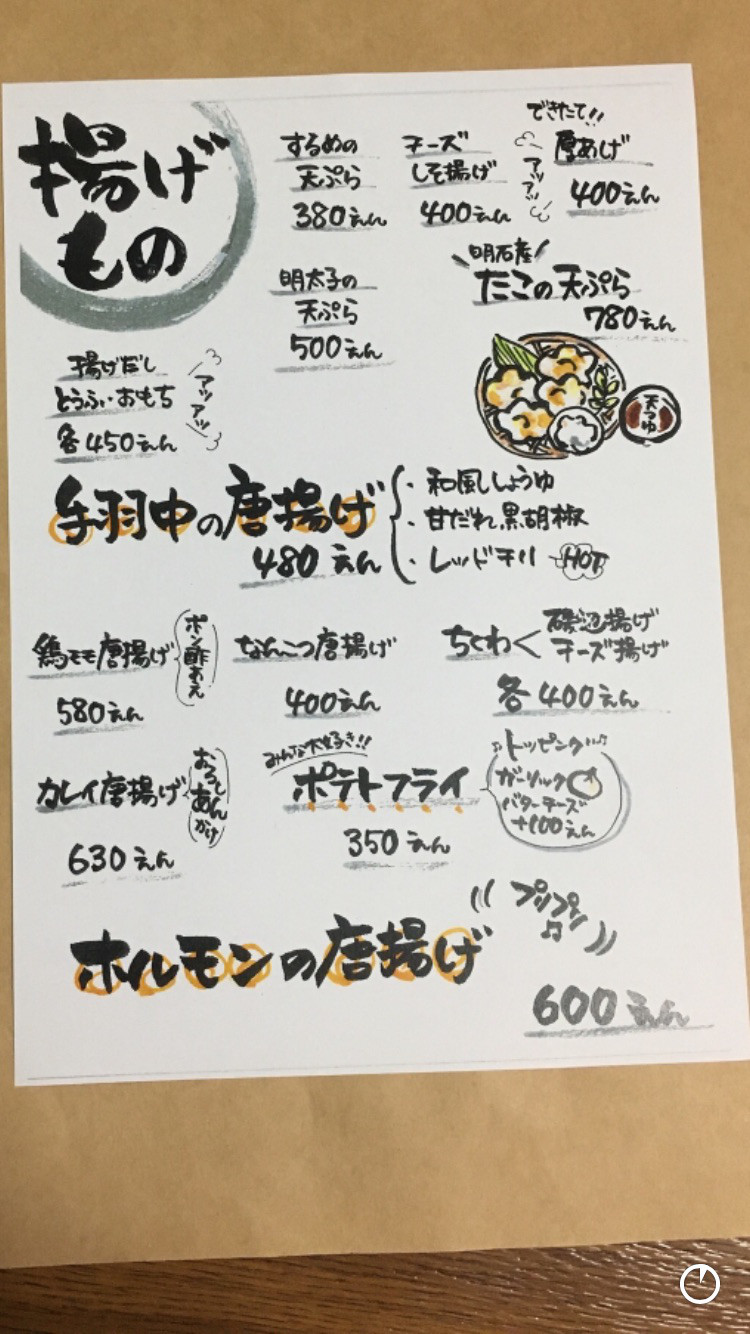 揚げ
もの
するめの
天ぷら
380えん
チーズ
しそ揚げ
400えん
できたて!!
厚あげ
アッアッ
400えん
明太子の
天ぷら
500えん
明石産
たこの天ぷら
780えん
天つゆ
揚げだし
とうふ・おもち
各450えん
アツアツ
手羽中の唐揚げ
480えん
・和風しょうゆ
・甘だれ黒胡椒
・レッドチリ HOT
鶏モモ唐揚げ
ポン酢
580えん
なんこつ唐揚げ
400えん
ちくわ
磯辺揚げ
チーズ揚げ
各400えん
カレイ唐揚げ
おろし
あん
かけ
630えん
みんな大好き!!
ポテトフライ
350えん
♪トッピング♪
ガーリック
バターチーズ
+100えん
ホルモンの唐揚げ
プリプリ
♫
600えん